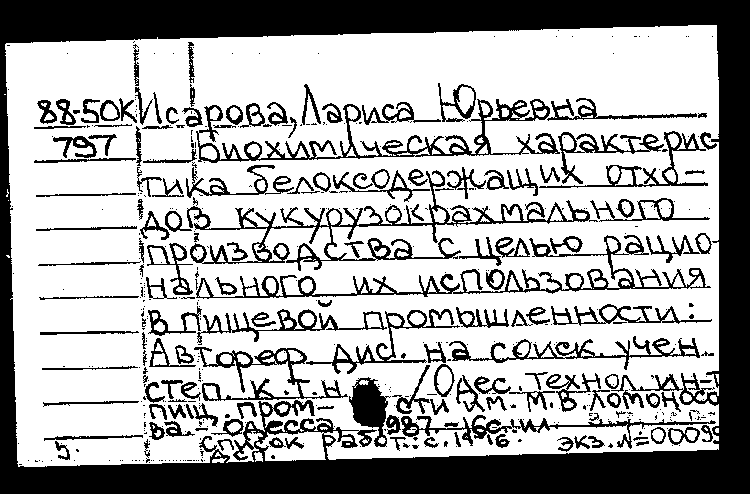 88-50К Исарова, Лариса Юрьевна
797 Биохимическая характерис-
тика белоксодержащих отхо-
дов кукурузокрахмального
производства с целью рацио-
нального их использования
в пищевой промышленности:
Автореф. дис. на соиск. учен.
степ. к.т.н. /Одес. технол. ин-т
пищ. пром-сти им. М.В. Ломоносо
ва. - Одесса, 1987. - 16с.: ил.
Список работ: с.
5. ДСП. экз. №00099